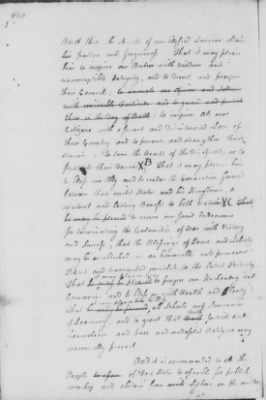 And thro the Merits of our blessed Saviour obtain
his pardon and forgiveness. That it may please
him to inspire our Rulers with wisdom and
uncorruptible integrity, and to direct and prosper
their Councils; to animate our Officers and Soldiers
with invincible fortitude and to guard and protect
them in the Day of Battle to inspire all our
Citizens with a fervent and disinterested Love of
their Country and to preserve and strengthen their
Union: to turn the Hearts of the disaffected, or to
their Devices B That it may please him
to bless our Ally and to render the Connection formed
between these united States and his Kingdoms, a
constant and lasting Benefit to both Nations C That
he may be pleased to crown our Joint Endeavors
for terminating the Calamities of War with Victory
and Success, that the Blessings of Peace and Liberty
may be established on an honorable and permanent
Basis and transmitted inviolate to the latest Posterity
That he may be pleased to prosper our Husbandry and
Commerce and to bless us with Health and Plenty
That all Schools and Seminaries
of Learning, and to grant that Truth Justice and
Benevolence and pure and undefiled Religion may
universally prevail.
And it is recommended to all the
People of these States to assemble for publick
worship and abstain from Labor on the said Day